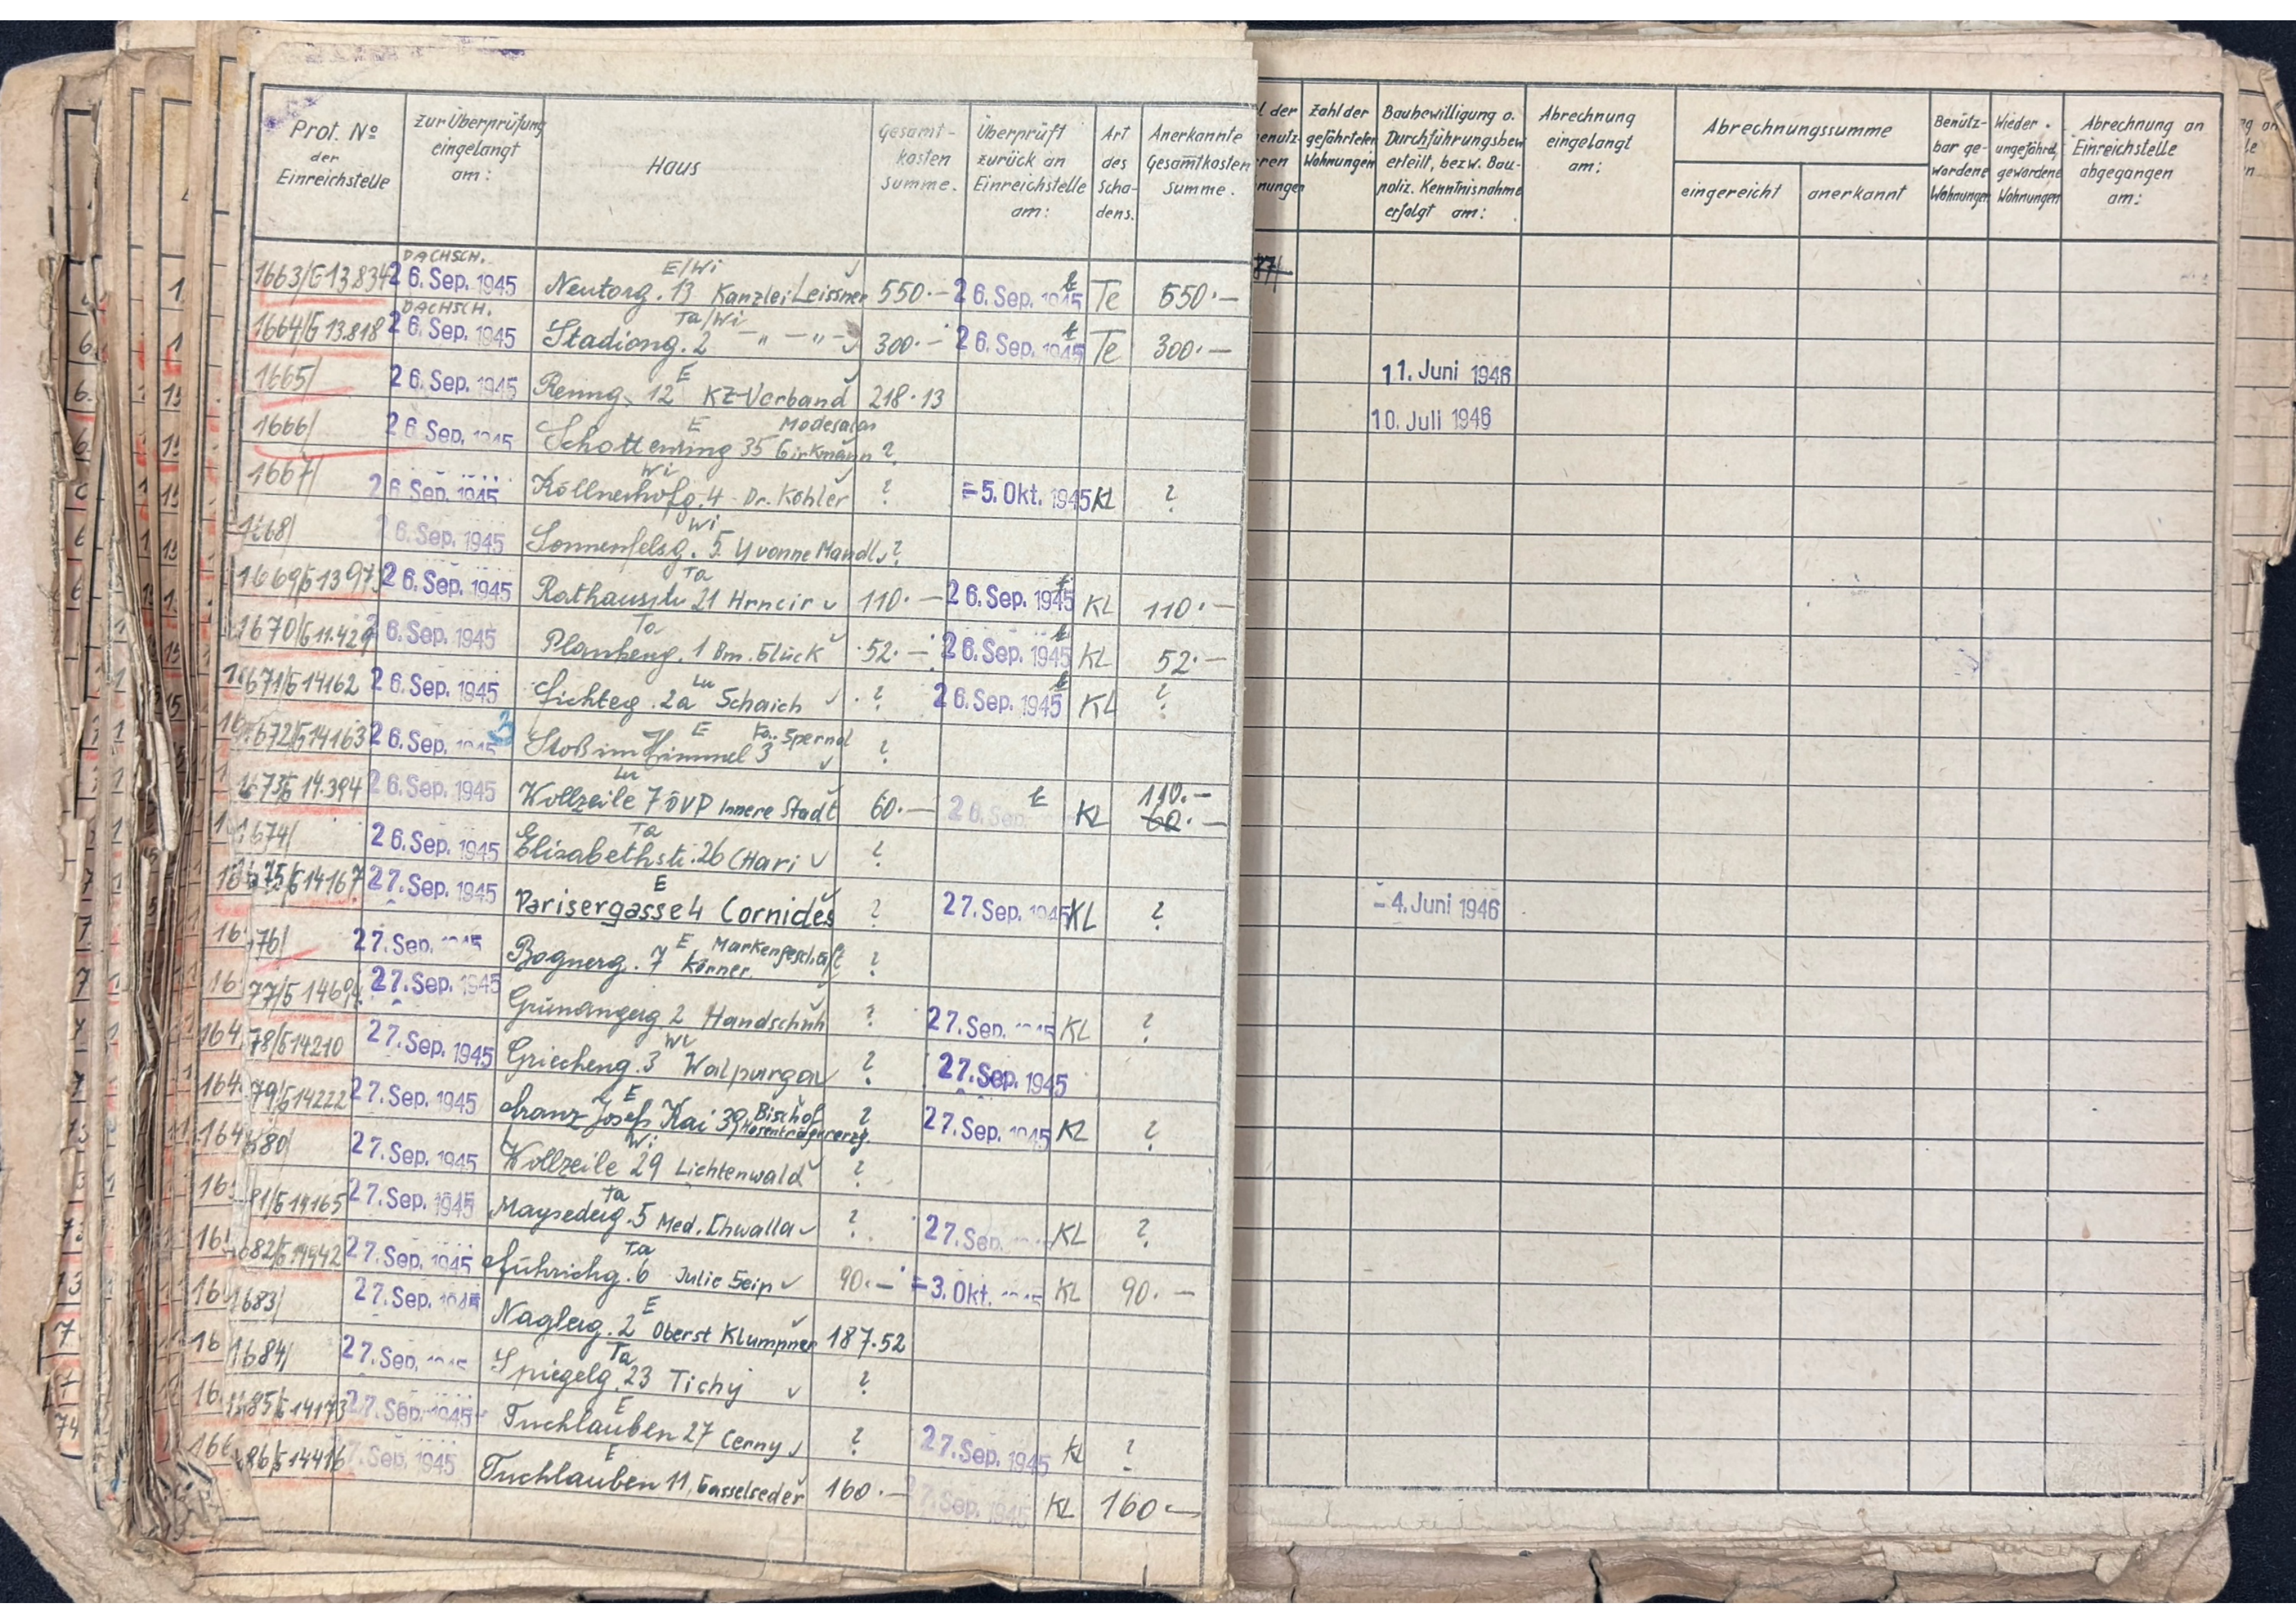 Prot. No der Einreichstelle | zur Überprüfung eingelangt am: | Haus | Gesamt-kosten summe. | Überprüft zurück an Einreichstelle am: | Art des Scha-dens. | Anerkannte Gesamtkosten summe. | Zahl der gefährteten Wohnungen | Baubewilligung o. Durchführungsbew erteilt, bezw. Bau-poliz. Kenntnisnahme erfolgt am: | Abrechnung eingelangt am: | Abrechnungssumme eingereicht | anerkannt | Benütz-bar ge-wordene Wohnungen | Wieder ungefährd. gewordene Wohnungen | Abrechnung an Einreichstelle abgegangen am:
1663/G13834 | DACHSCH. 26. Sep. 1945 | Neutorg. 13 E/Wi Kanzlei Leissner | 550.— | 26. Sep. 1945 | Te | 550.—
1664/G13.818 | DACHSCH. 26. Sep. 1945 | Stadiong. 2 Ta/Wi — " — " — | 300.— | 26. Sep. 1945 | Te | 300.—
1665/ | 26. Sep. 1945 | Renng. 12 E KZ-Verband | 218.13 | 11. Juni 1946
1666/ | 26. Sep. 1945 | Schottenring 35 E Modesalon Girkmann | ? | 10. Juli 1946
1667/ | 26. Sep. 1945 | Köllnerhofg. 4 Wi Dr. Köhler | ? | - 5. Okt. 1945 | KL | ?
1668/ | 26. Sep. 1945 | Sonnenfelsg. 5 Wi Yvonne Mandl | ?
1669/G1397 | 26. Sep. 1945 | Rathausstr 21 Ta Hrncir | 110.— | 26. Sep. 1945 | KL | 110.—
1670/G11.429 | 26. Sep. 1945 | Plankeng. 1 Ta Bm. Glück | 52.— | 26. Sep. 1945 | KL | 52.—
1671/G14162 | 26. Sep. 1945 | Fichteg. 2a Lu Schaich | ? | 26. Sep. 1945 | KL | ?
1672/G14163 | 26. Sep. 1945 | 3 Stoß im Himmel 3 E Fa. Spernal | ?
1673/G14.394 | 26. Sep. 1945 | Wollzeile 7 Lu ÖVP Innere Stadt | 60.— | 26. Sep. | KL | 110.— 60.—
1674/ | 26. Sep. 1945 | Elisabethstr. 26 Ta (Hari | ?
1675/G14167 | 27. Sep. 1945 | Parisergasse 4 E Cornides | ? | 27. Sep. 1945 | KL | ? | - 4. Juni 1946
76/ | 27. Sep. 1945 | Bognerg. 7 E Markengeschäft Körner | ?
77/G1469 | 27. Sep. 1945 | Grünangerg 2 Handschuh | ? | 27. Sep. 1945 | KL | ?
78/G14210 | 27. Sep. 1945 | Griecheng. 3 Wi Walpurga | ? | 27. Sep. 1945
79/G14222 | 27. Sep. 1945 | Franz Josefs Kai 39 E Bischof Hosenträgererzg. | ? | 27. Sep. 1945 | KL | ?
680/ | 27. Sep. 1945 | Wollzeile 29 Wi Lichtenwald | ?
81/G14165 | 27. Sep. 1945 | Maysederg. 5 Ta Med. Chwalla | ? | 27. Sep. | KL | ?
682/G14942 | 27. Sep. 1945 | Führichg. 6 Ta Julie Seip | 90.— | - 3. Okt. 1945 | KL | 90.—
1683/ | 27. Sep. 1945 | Naglerg. 2 E Oberst Klumpner | 187.52
1684/ | 27. Sep. 1945 | Spiegelg. 23 Ta Tichy | ?
85/G14173 | 27. Sep. 1945 | Tuchlauben 27 E Cerny | ? | 27. Sep. 1945 | KL | ?
86/G14416 | 27. Sep. 1945 | Tuchlauben 11, E Gasselseder | 160.— | 27. Sep. 1945 | KL | 160.—